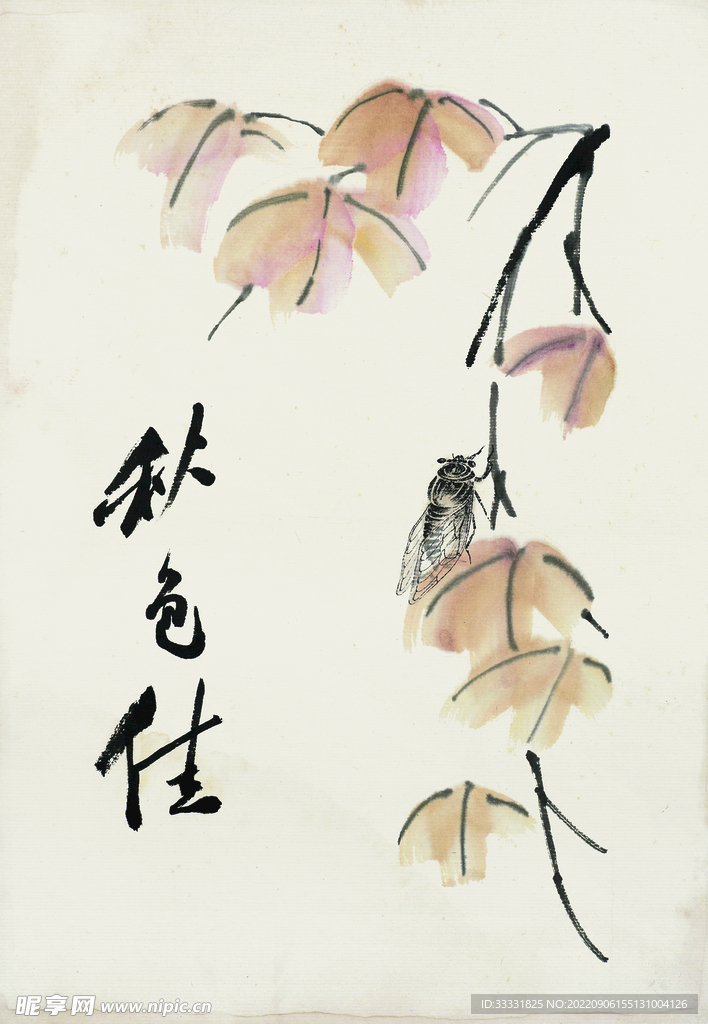 秋色佳
昵享网 www.nipic.cn
ID:33331825 NO:20220906155131004126